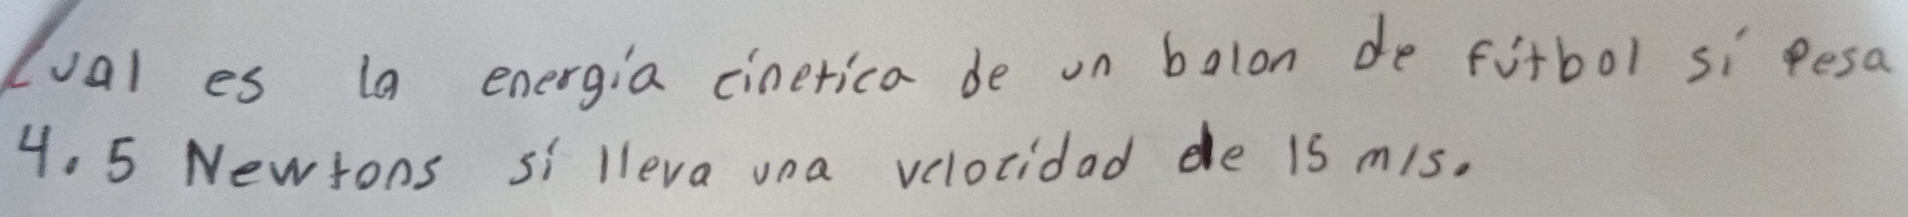 Cual es la energía cinetica de un balon de fútbol sí pesa
4.5 Newtons sí lleva una velocidad de 15 m/s.